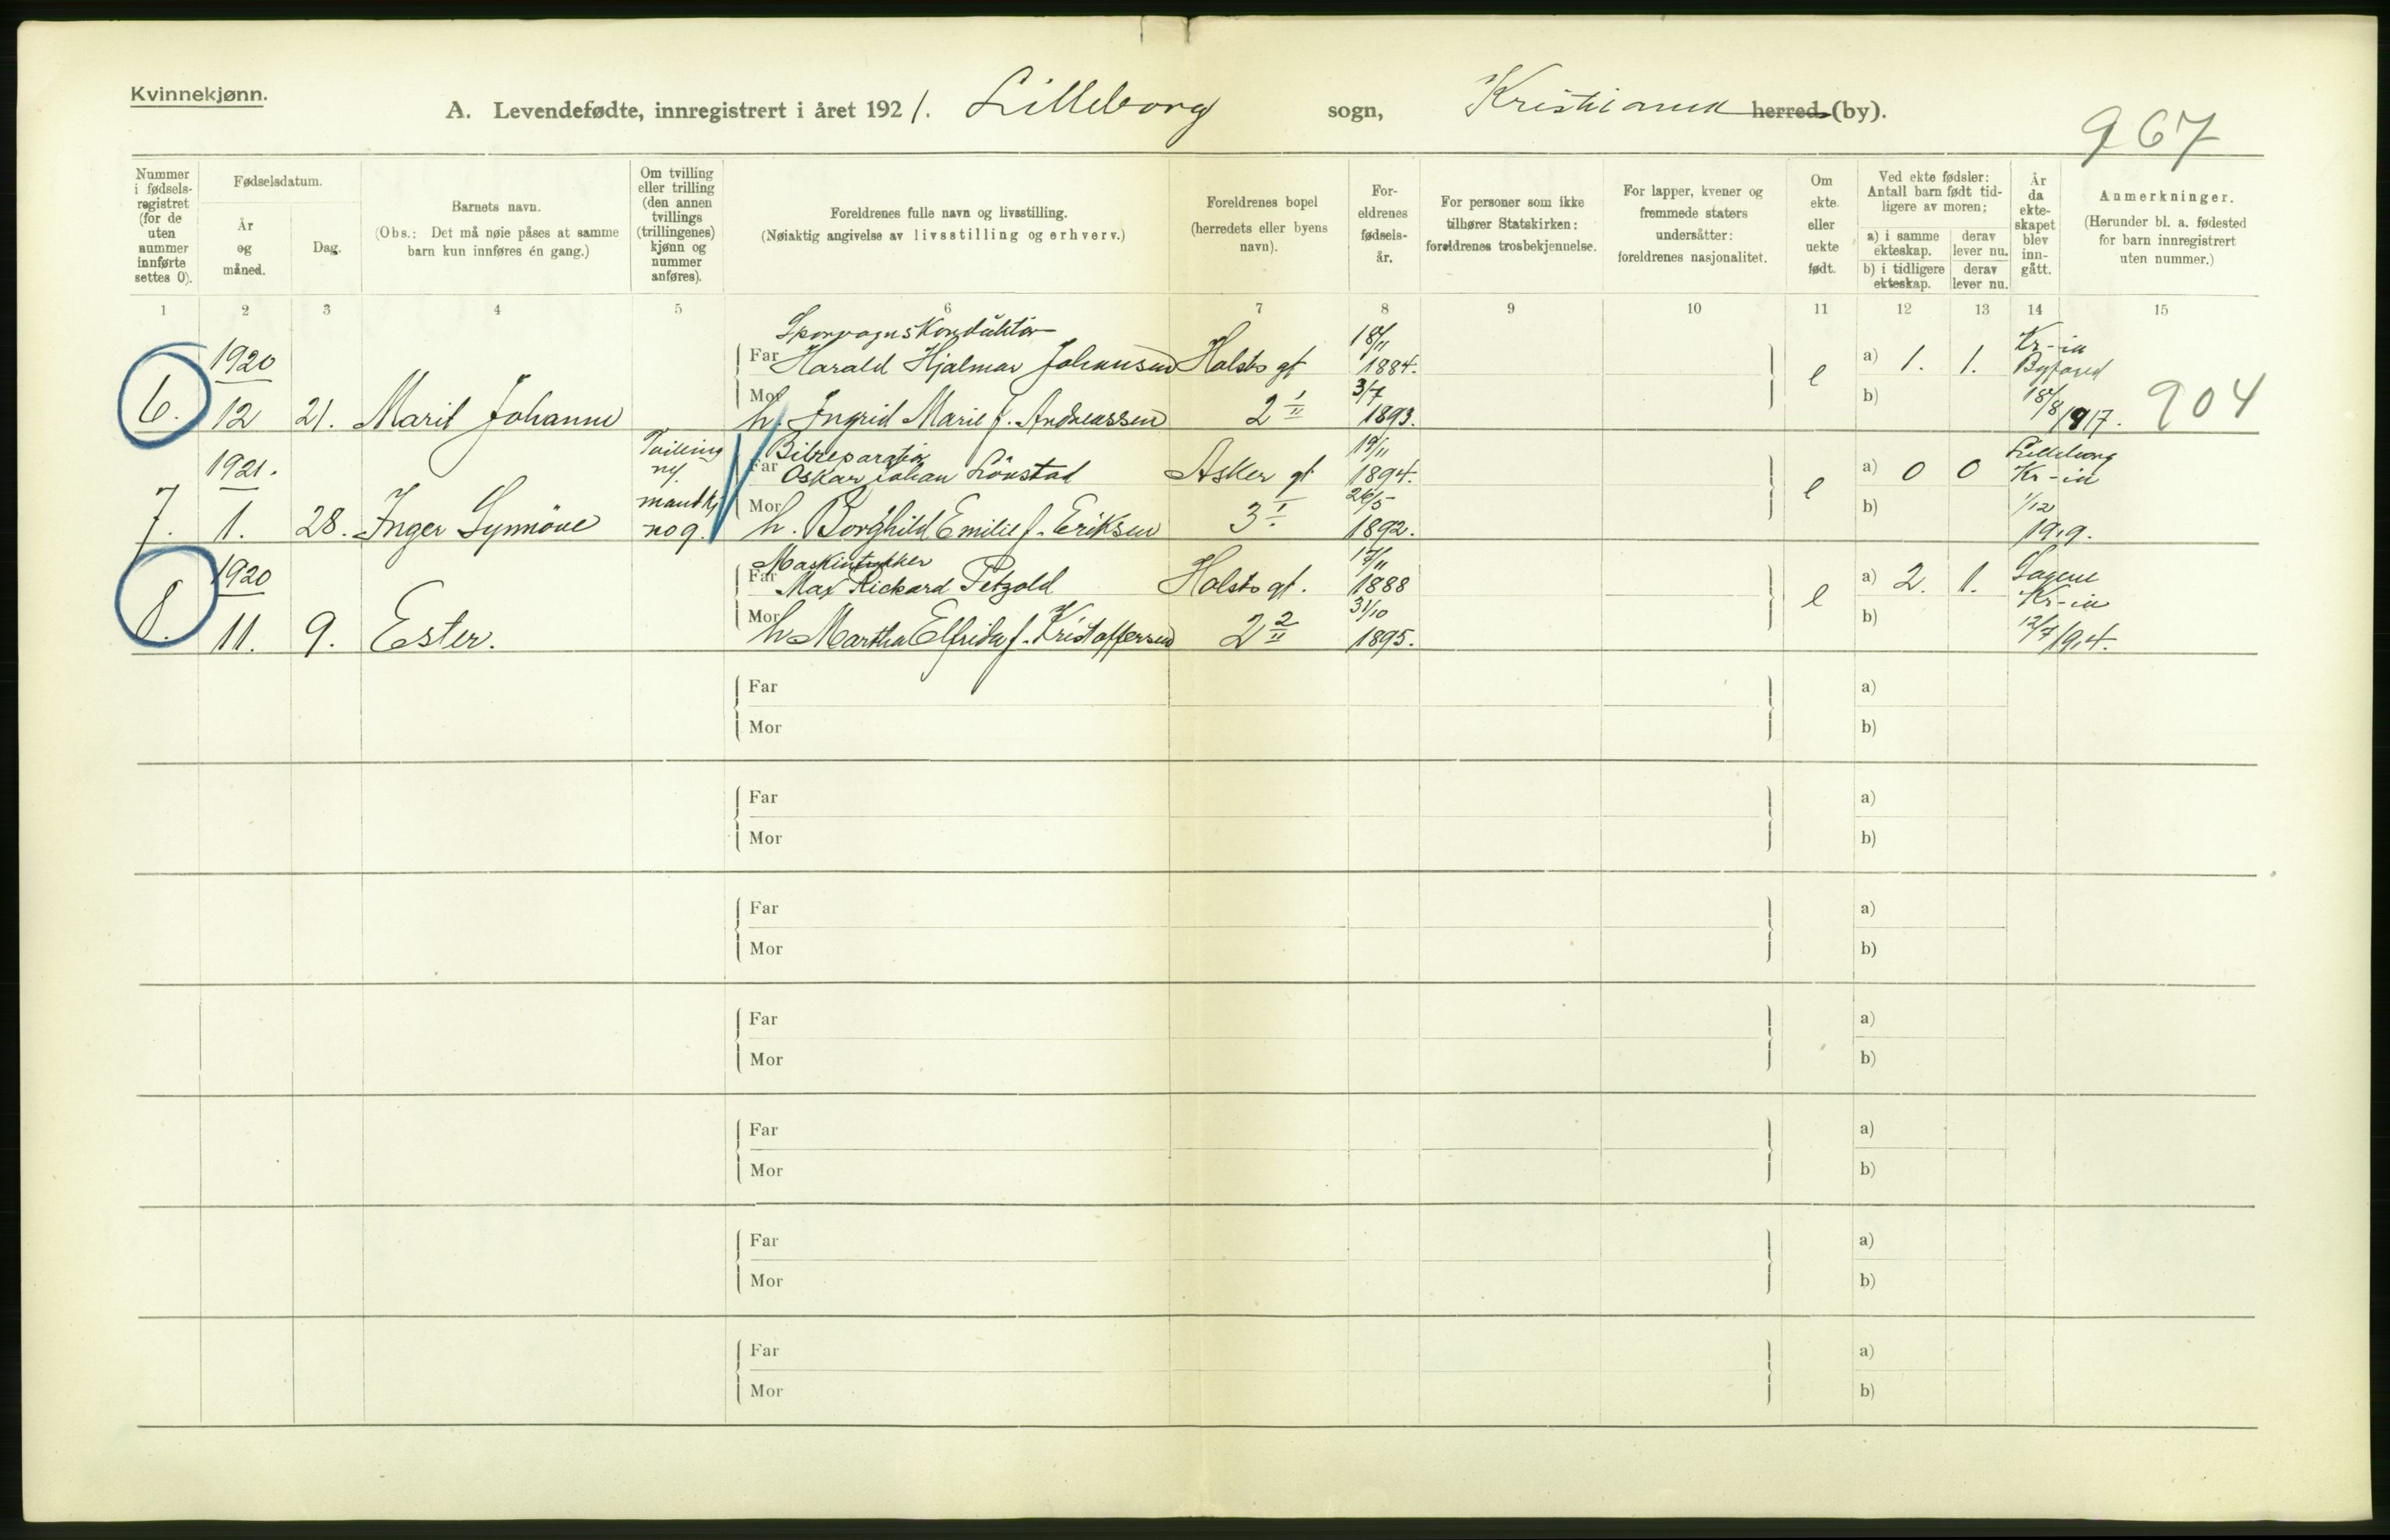 Kvinnekjønn.
A. Levendefødte, innregistrert i året 1921. Lilleborg sogn, Kristiania herred (by).
967
Nummer i fødselsregistret (for de uten nummer innførte settes 0).
Fødselsdatum.
År og måned.
Dag.
Barnets navn.
(Obs.: Det må nøie påses at samme barn kun innføres én gang.)
Om tvilling eller trilling (den annen tvillings (trillingenes) kjønn og nummer anføres).
Foreldrenes fulle navn og livsstilling.
(Nøiaktig angivelse av livsstilling og erhverv.)
Foreldrenes bopel (herredets eller byens navn).
Foreldrenes fødselsår.
For personer som ikke tilhører Statskirken: foreldrenes trosbekjennelse.
For lapper, kvener og fremmede staters undersåtter: foreldrenes nasjonalitet.
Om ekte eller uekte født.
Ved ekte fødsler: Antall barn født tidligere av moren;
a) i samme ekteskap.
derav lever nu.
b) i tidligere ekteskap.
derav lever nu.
År da ekteskapet blev inngått.
Anmerkninger.
(Herunder bl. a. fødested for barn innregistrert uten nummer.)
1 2 3 4 5 6 7 8 9 10 11 12 13 14 15
6. 1920 12 21. Marit Johanne
Sporvognskonduktør
Far Harald Hjalmar Johansen Holsts gt 18/11 1884.
Mor h. Ingrid Marie f. Andreassen 2 I/II 3/7 1893.
e a) 1. 1. b)
Kr-ia
18/8 1917.
904
7. 1921. 1. 28. Inger Synnöve
Tvilling
m/
mandkj
no 9.
Bilreparatör
Far Oskar Johan Lönstad Asker gt 19/11 1894.
Mor h. Borghild Emilie f. Eriksen 3 I 26/5 1892.
e a) 0 0 b)
Lilleborg
Kr-ia
1/12
1919.
8. 1920 11. 9. Ester.
Far Max Rickard Petzold Holsts gt. 17/11 1888
Mor h Martha Elfrida f. Kristoffersen 2 2/II 31/10 1895.
e a) 2. 1. b)
Sagene
Kr-ia
12/7 1914.
Far a)
Mor b)
Far a)
Mor b)
Far a)
Mor b)
Far a)
Mor b)
Far a)
Mor b)
Far a)
Mor b)
Far a)
Mor b)